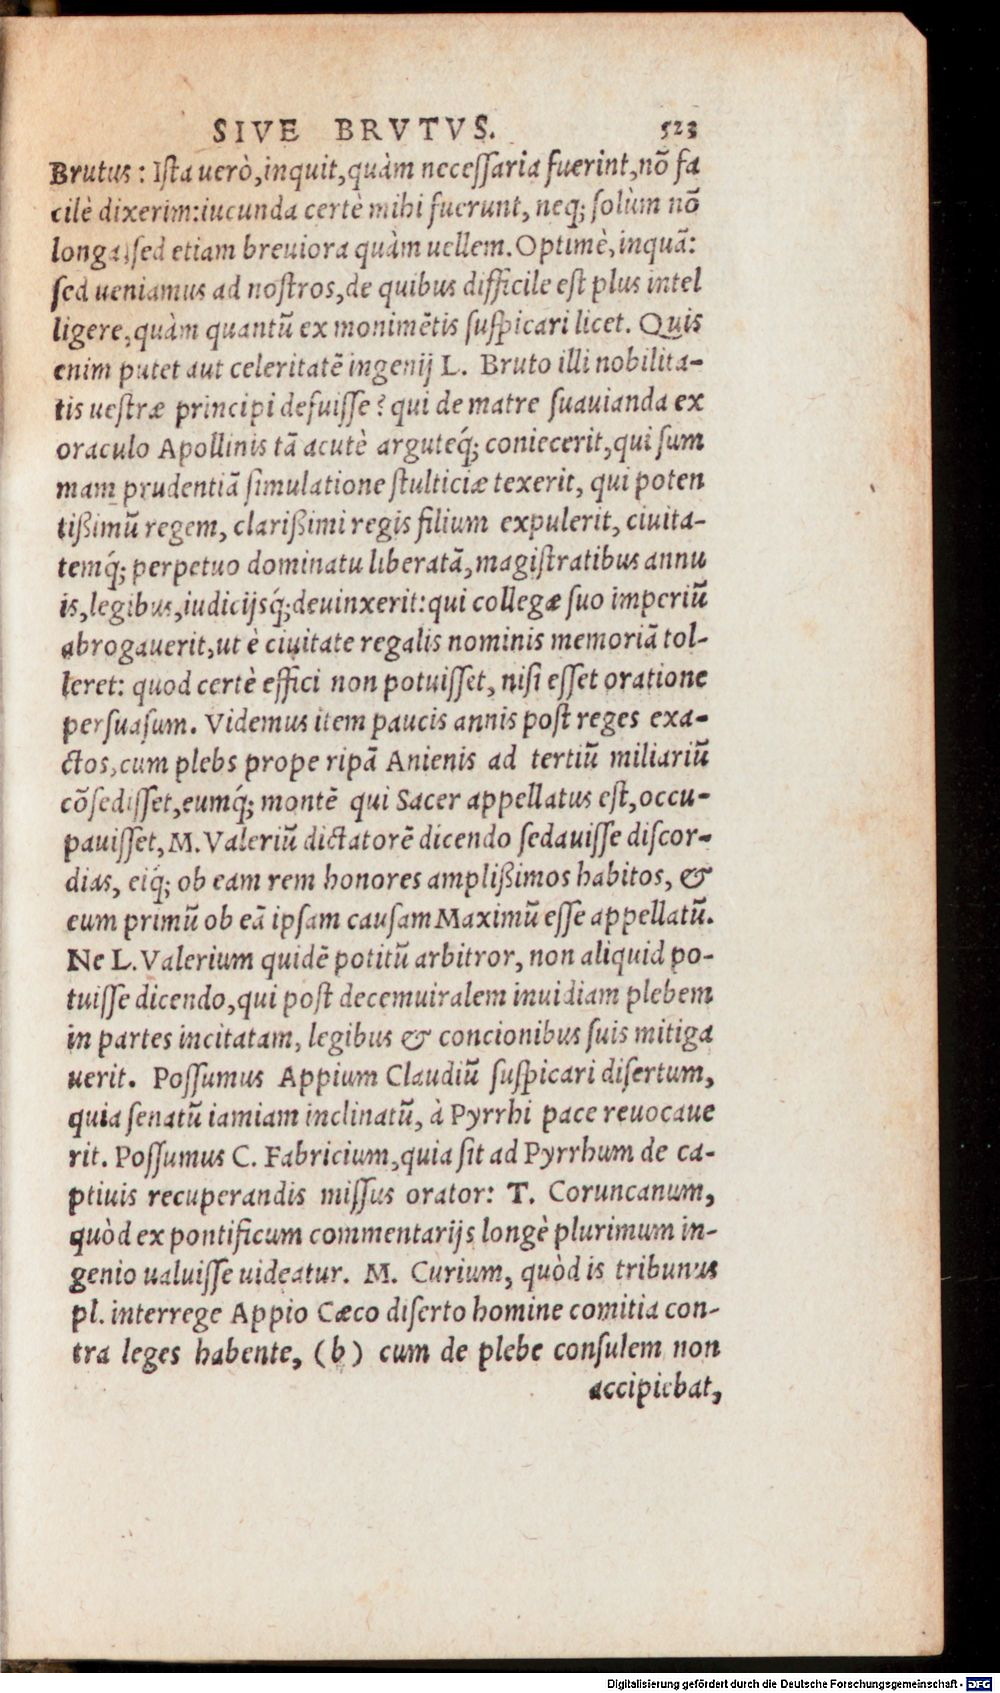 SIVE BRVTVS. 523
Brutus: Ista uerò, inquit, quàm necessaria fuerint, nō fa
cilè dixerim: iucunda certè mihi fuerunt, neq; solùm nō
longa, sed etiam breuiora quàm uellem. Optimè, inquā:
sed ueniamus ad nostros, de quibus difficile est plus intel
ligere, quàm quantū ex monimētis suspicari licet. Quis
enim putet aut celeritatē ingenij L. Bruto illi nobilita-
tis uestræ principi defuisse? qui de matre suauianda ex
oraculo Apollinis tā acutè arguteq́; coniecerit, qui sum
mam prudentiā simulatione stulticiæ texerit, qui poten
tißimū regem, clarißimi regis filium expulerit, ciuita-
temq́; perpetuo dominatu liberatā, magistratibus annu
is, legibus, iudicijsq́; deuinxerit: qui collegæ suo imperiū
abrogauerit, ut è ciuitate regalis nominis memoriā tol-
leret: quod certè effici non potuisset, nisi esset oratione
persuasum. Videmus item paucis annis post reges exa-
ctos, cum plebs prope ripā Anienis ad tertiū miliariū
cōsedisset, eumq́; montē qui Sacer appellatus est, occu-
pauisset, M. Valeriū dictatorē dicendo sedauisse discor-
dias, eiq́; ob eam rem honores amplißimos habitos, &
eum primū ob eā ipsam causam Maximū esse appellatū.
Ne L. Valerium quidē potitū arbitror, non aliquid po-
tuisse dicendo, qui post decemuiralem inuidiam plebem
in partes incitatam, legibus & concionibus suis mitiga
uerit. Possumus Appium Claudiū suspicari disertum,
quia senatū iamiam inclinatū, à Pyrrhi pace reuocaue
rit. Possumus C. Fabricium, quia sit ad Pyrrhum de ca-
ptiuis recuperandis missus orator: T. Coruncanum,
quòd ex pontificum commentarijs longè plurimum in-
genio ualuisse uideatur. M. Curium, quòd is tribunus
pl. interrege Appio Cæco diserto homine comitia con-
tra leges habente, (b) cum de plebe consulem non
accipiebat,
Digitalisierung gefördert durch die Deutsche Forschungsgemeinschaft - DFG